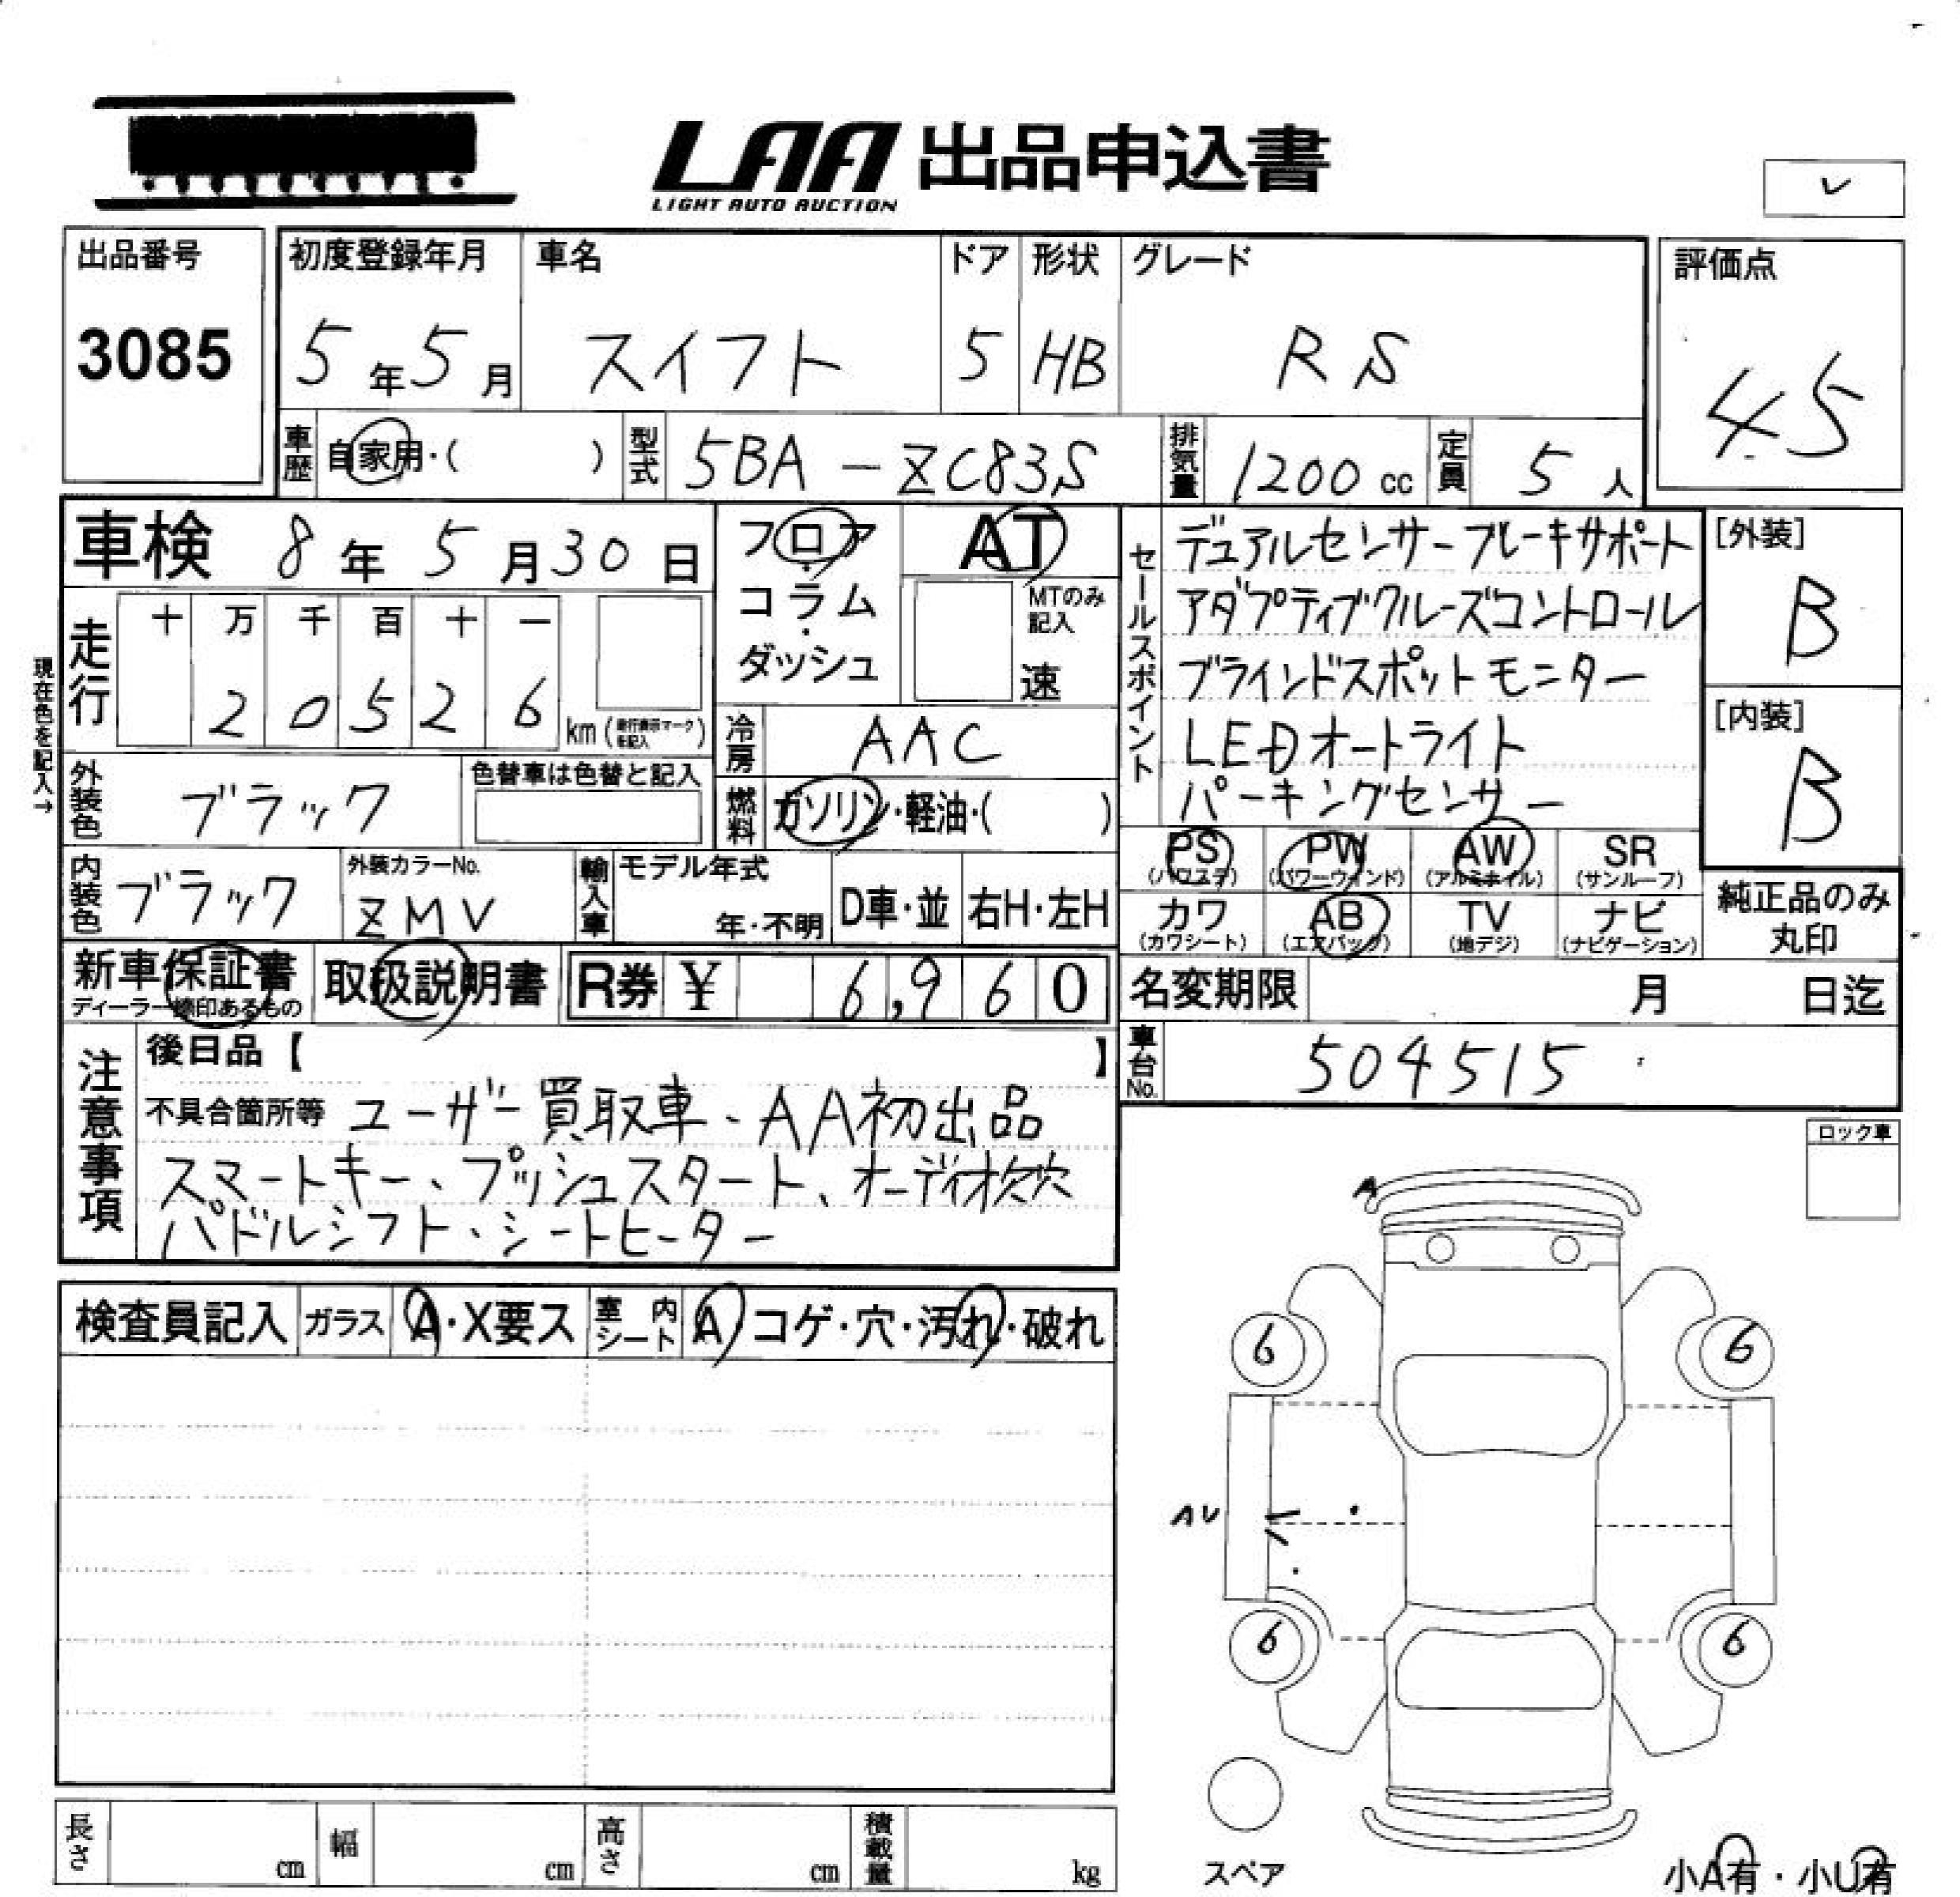 LAA 出品申込書
LIGHT AUTO AUCTION
レ
出品番号
3085
初度登録年月
5年5月
車名
スイフト
ドア
5
形状
HB
グレード
RS
評価点
4.5
車歴
自家用・( )
型式
5BA-ZC83S
排気量
1200 cc
定員
5人
車検 8年5月30日
フロア・コラム・ダッシュ
AT
MTのみ記入
速
セールスポイント
デュアルセンサーブレーキサポート
アダプティブクルーズコントロール
ブラインドスポットモニター
LEDオートライト
パーキングセンサー
[外装]
B
[内装]
B
現在色を記入→
走行
十 万 千 百 十 一
2 0 5 2 6 km (走行表示マークを記入)
冷房
AAC
外装色
ブラック
色替車は色替と記入
燃料
ガソリン・軽油・( )
内装色
ブラック
外装カラーNo.
ZMV
輸入車
モデル年式
年・不明
D車・並
右H・左H
PS (パワステ)
PW (パワーウインド)
AW (アルミホイル)
SR (サンルーフ)
カワ (カワシート)
AB (エアバック)
TV (地デジ)
ナビ (ナビゲーション)
純正品のみ丸印
新車保証書
ディーラー捺印あるもの
取扱説明書
R券 ¥ 6,960
名変期限 月 日迄
車台No.
504515
注意事項
後日品【 】
不具合箇所等 ユーザー買取車、AA初出品
スマートキー、プッシュスタート、オーディオ欠穴
パドルシフト、シートヒーター
ロック車
検査員記入
ガラス
A・X要ス
室内シート
A コゲ・穴・汚れ・破れ
A
6
6
AU
6
6
スペア
小A有・小U有
長さ cm
幅 cm
高さ cm
積載量 kg